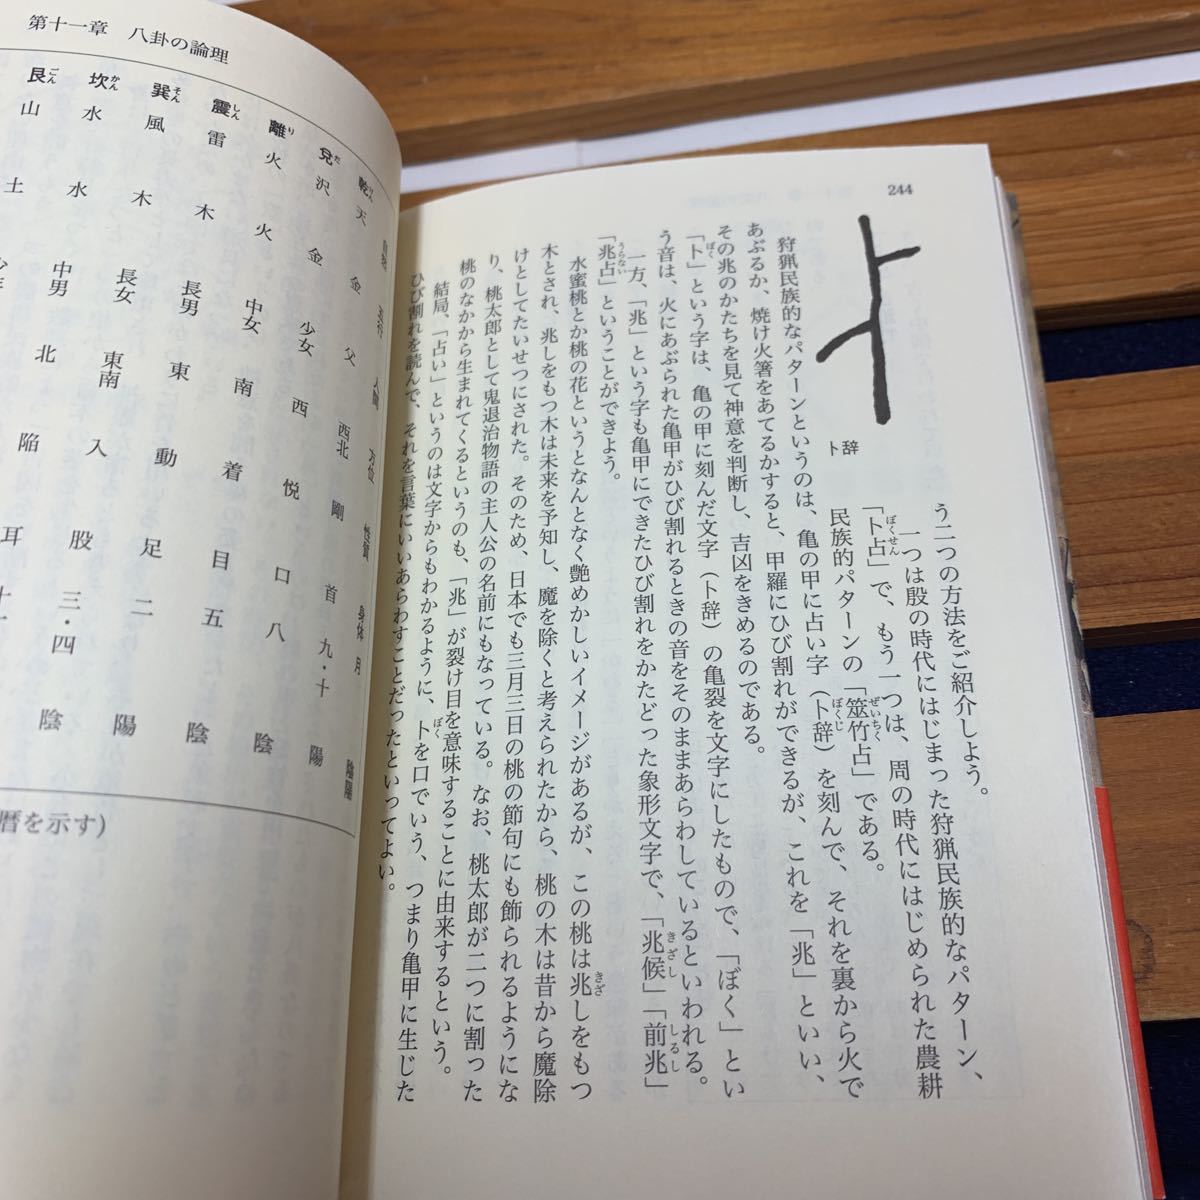 244
卜辞
う二つの方法をご紹介しよう。
一つは殷の時代にはじまった狩猟民族的なパターン、
「卜占」で、もう一つは、周の時代にはじめられた農耕
民族的パターンの「筮竹占」である。
狩猟民族的なパターンというのは、亀の甲に占い字（卜辞）を刻んで、それを裏から火で
あぶるか、焼け火箸をあてるかすると、甲羅にひび割れができるが、これを「兆」といい、
その兆のかたちを見て神意を判断し、吉凶をきめるのである。
「卜」という字は、亀の甲に刻んだ文字（卜辞）の亀裂を文字にしたもので、「ぼく」とい
う音は、火にあぶられた亀甲がひび割れるときの音をそのままあらわしているといわれる。
一方、「兆」という字も亀甲にできたひび割れをかたどった象形文字で、「兆候」「前兆」
「兆占」ということができよう。
水蜜桃とか桃の花というとなんとなく艶めかしいイメージがあるが、この桃は兆しをもつ
木とされ、兆しをもつ木は未来を予知し、魔を除くと考えられたから、桃の木は昔から魔除
けとしてたいせつにされた。そのため、日本でも三月三日の桃の節句にも飾られるようにな
り、桃太郎として鬼退治物語の主人公の名前にもなっている。なお、桃太郎が二つに割った
桃のなかから生まれてくるというのも、「兆」が裂け目を意味することに由来するという。
結局、「占い」というのは文字からもわかるように、卜を口でいう、つまり亀甲に生じた
ひび割れを読んで、それを言葉にいいあらわすことだったといってよい。
第十一章 八卦の論理
自然 五行 人間 方位 性質 身体 月 陰陽
乾 天 金 父 西北 剛 首 九・十 陽
兌 沢 金 少女 西 悦 口 八 陰
離 火 火 中女 南 着 目 五 陰
震 雷 木 長男 東 動 足 二 陽
巽 風 木 長女 東南 入 股 三・四 陰
坎 水 水 中男 北 陥 耳
艮 山 土
暦を示す）